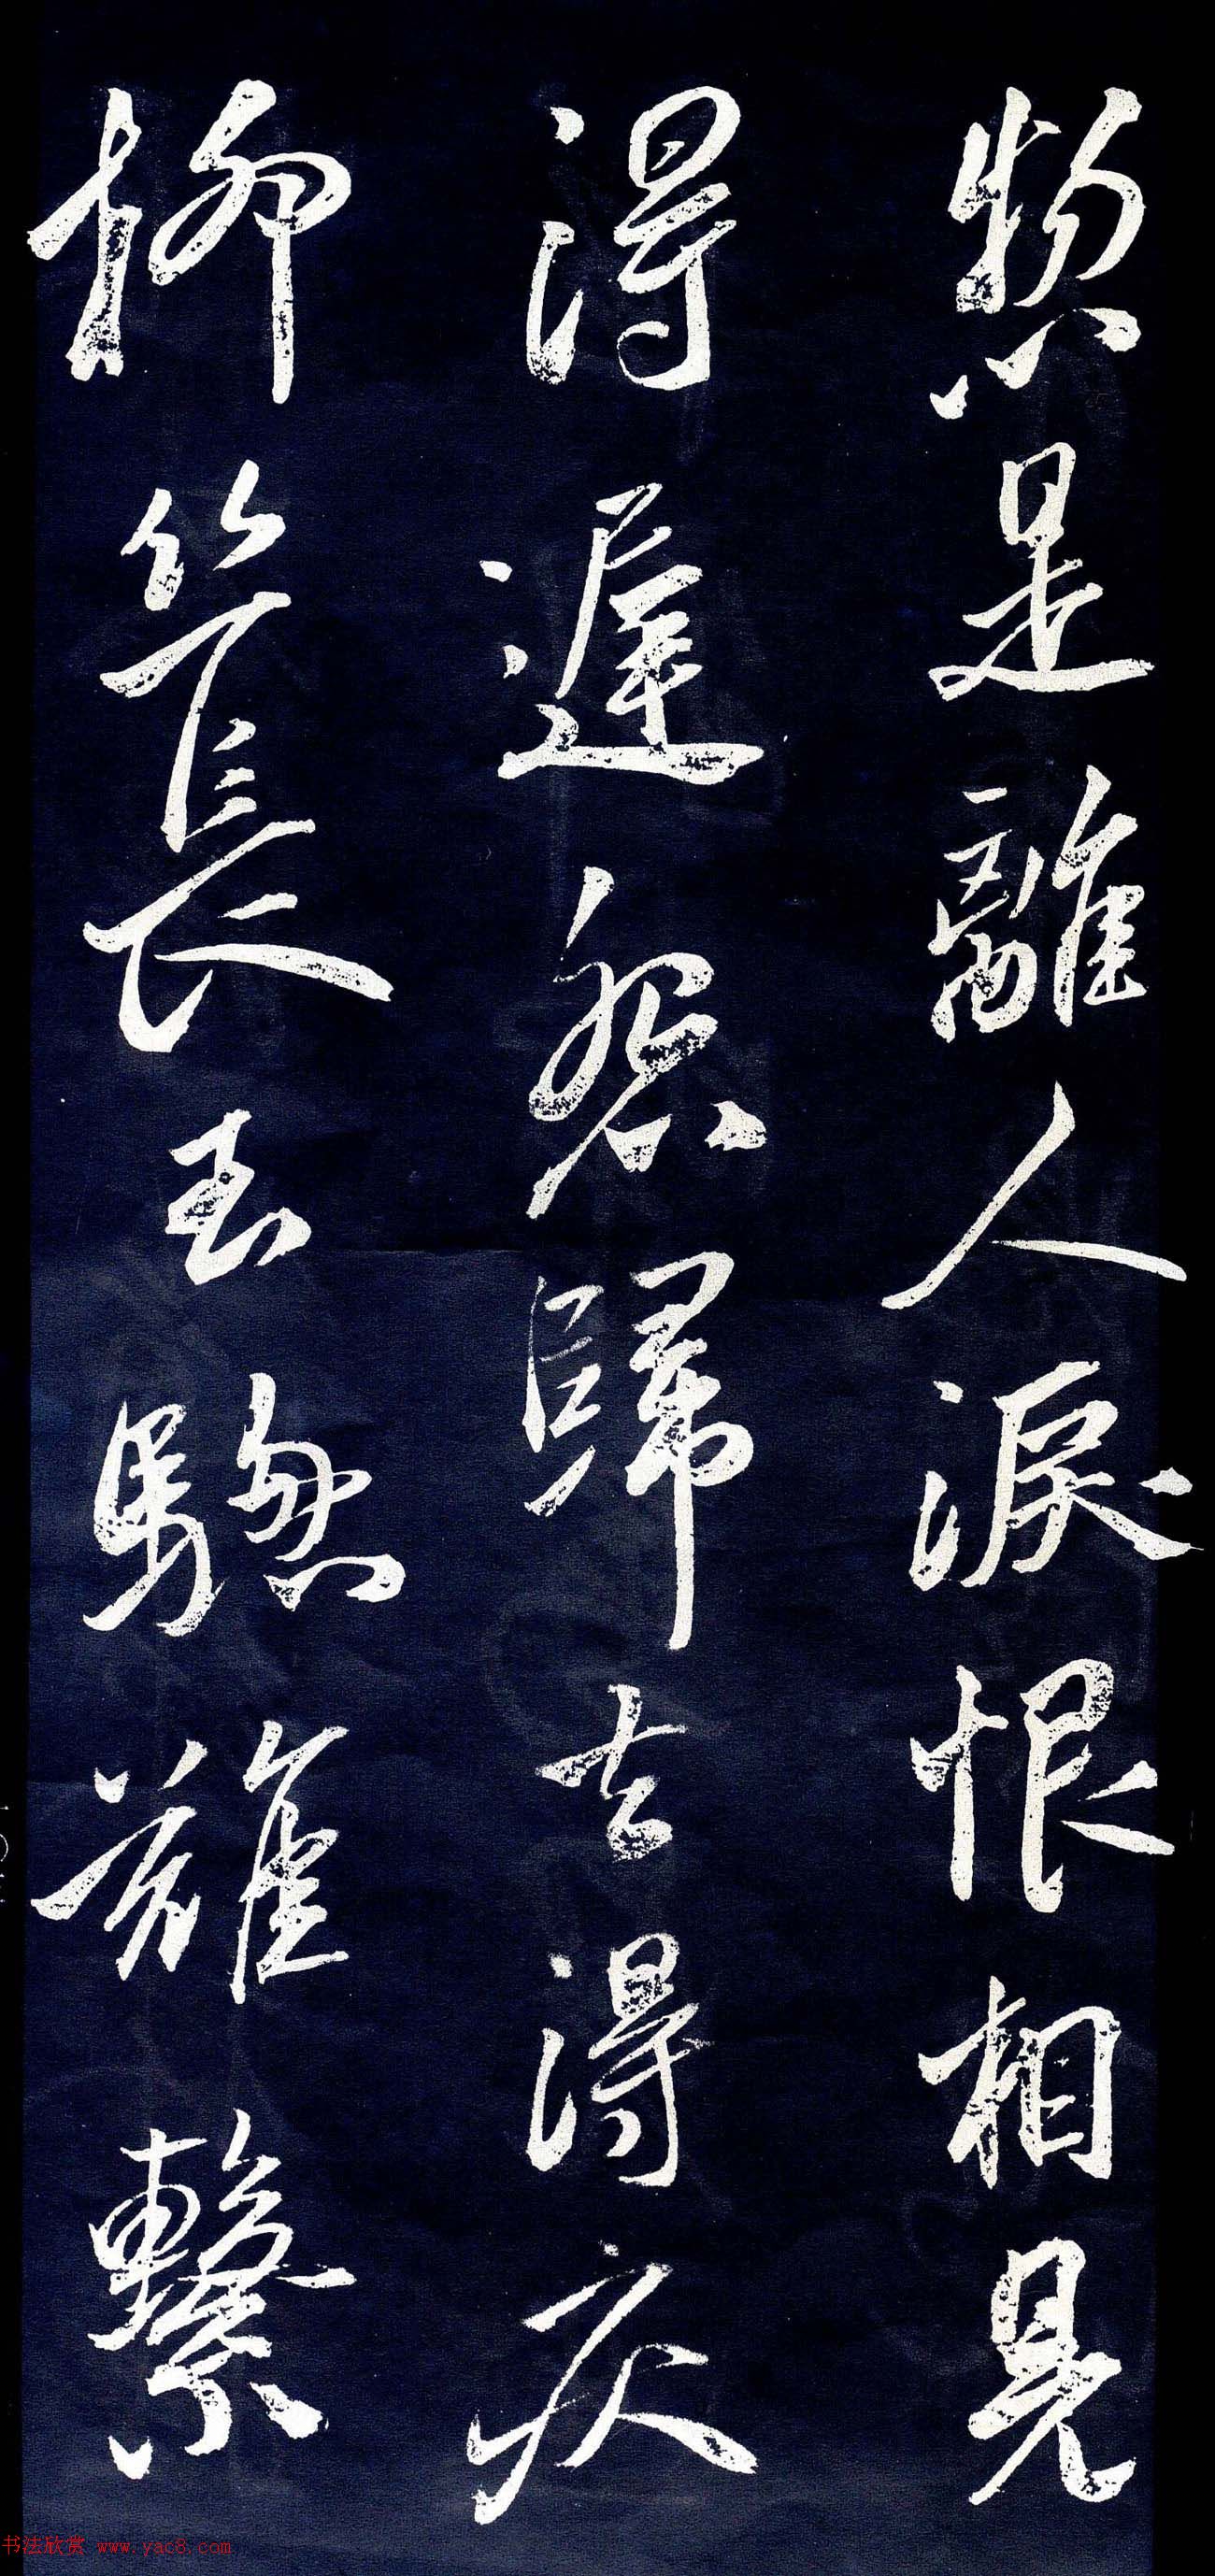 揔是離人淚恨相見
得遲怨歸去得疾
柳丝長玉驄難繫
书法欣赏 www.yac8.com